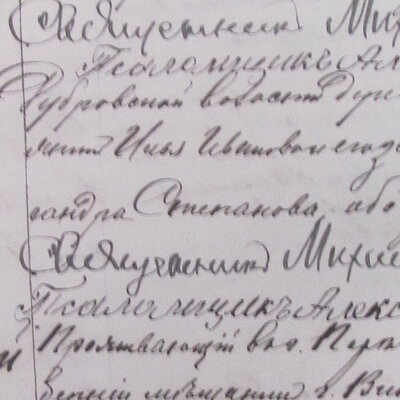 Священникъ Мих
Псаломщикъ Але
Дубровской волости дер
Илья Ивановъ и его за
сандра Степанова, обо
Священникъ Михаи
Псаломщикъ Алекс
Проживающій въ г.
мѣщанинъ г. Ви